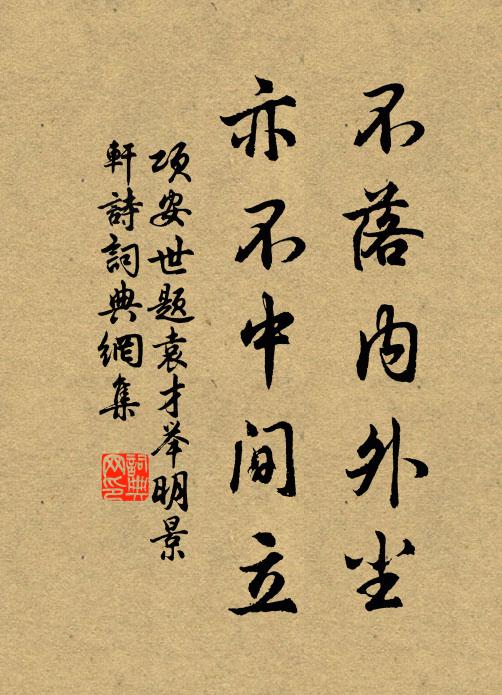 不落内外尘
亦不中间立
项安世题袁才举明景
軒詩詞典網集
詞典网印